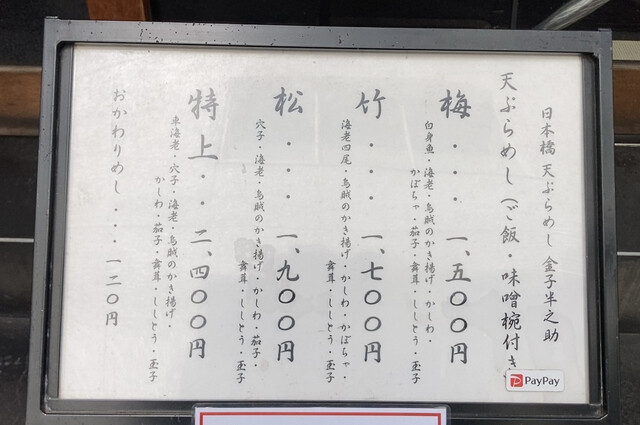 日本橋 天ぷらめし 金子半之助
天ぷらめし（ご飯・味噌椀付き
梅・・・一、五〇〇円
白身魚・海老・烏賊のかき揚げ・かしわ・
かぼちゃ・茄子・舞茸・ししとう・玉子
竹・・・一、七〇〇円
海老四尾・烏賊のかき揚げ・かしわ・かぼちゃ・
舞茸・ししとう・玉子
松・・・一、九〇〇円
穴子・海老・烏賊のかき揚げ・かしわ・茄子・
舞茸・ししとう・玉子
特上・・二、四〇〇円
車海老・穴子・海老・烏賊のかき揚げ・
かしわ・茄子・舞茸・ししとう・玉子
おかわりめし・・・一二〇円
PayPay